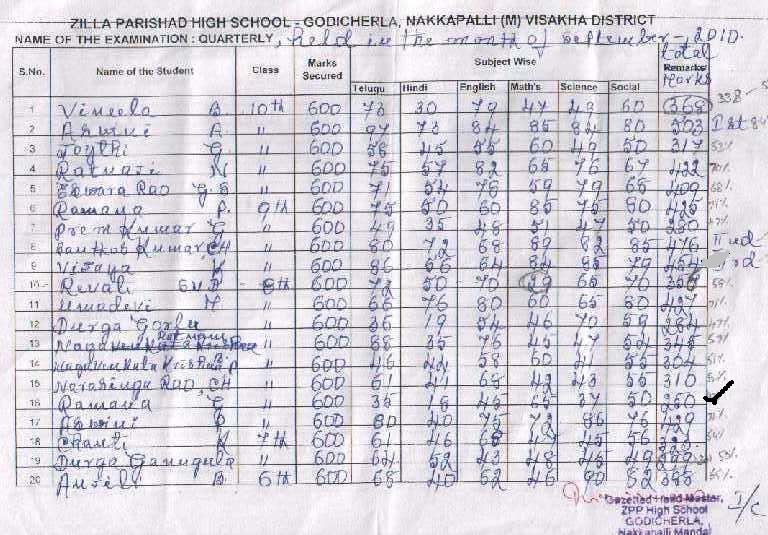 ZILLA PARISHAD HIGH SCHOOL - GODICHERLA, NAKKAPALLI (M) VISAKHA DISTRICT
NAME OF THE EXAMINATION : QUARTERLY, held in the month of september - 2010.
S.No. Name of the Student Class Marks Secured Subject Wise total Remarks Marks
Telugu Hindi English Math's Science Social
1 Vineela B. 10th 600 73 30 79 47 49 60 368
2 A. " 600 97 73 84 85 84 80 503 Ist
3 Joythi G. " 600 58 45 55 60 49 50 317 53%
4 Ratnaji N " 600 75 57 82 65 76 67 422 70%
5 Eswara Rao G.S " 600 71 54 76 59 79 65 409 68%
6 Ramana P. 9th 600 75 50 60 85 75 80 425 71%
7 Prem Kumar G " 600 49 35 48 51 47 50 280 47%
8 Santhosh Kumar CH " 600 80 72 68 89 82 85 476 IInd
9 Vijaya K " 600 86 66 64 84 85 79 454
10 Revali S.V.P 8th 600 50 70 65 70 59%
11 Umadevi " 600 66 76 80 60 65 80 427 71%
12 Durga " 600 36 19 54 46 70 59 284 47%
13 " 600 88 35 76 45 47 54 345 57%
14 " 600 46 44 58 60 41 55 304 51%
15 Narasinga Rao, CH " 600 61 41 68 42 43 55 310
16 Ramana G " 600 35 18 45 65 37 50 250
17 Aswini P " 600 80 40 75 72 86 76 429
18 Chanti K 7th 600 61 46 68 49 45 56
19 Durga Ganugula " 600 64 52 43 48 45 49
20 B. 6th 600 68 40 62 46 90 52
Gazetted Head Master,
I/C
ZPP High School
GODICHERLA,
Nakkapalli Mandal